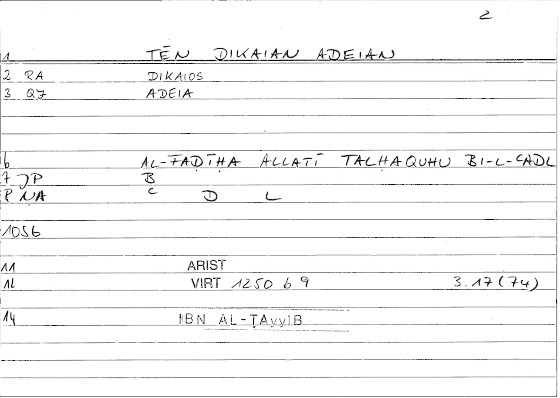 2
1 TĒN DIKAIAN ADEIAN
2 RA DIKAIOS
3 QJ ADEIA
6 AL-FAḌĪḤA ALLATĪ TALḤAQUHU BI-L-CADL
7 JP B
8 NA C D L
1056
11 ARIST
12 VIRT 1250 b 9 3.17 (74)
14 IBN AL-ṬAyyIB